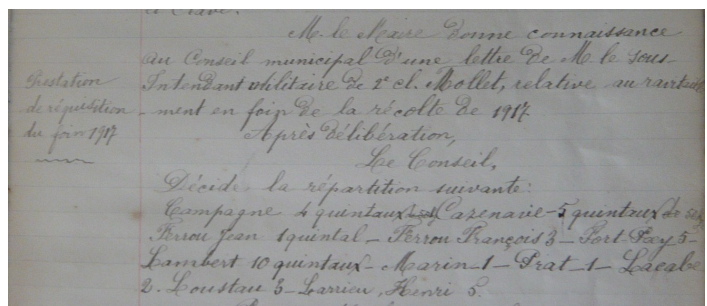 à Clave.
M. le Maire donne connaissance
au Conseil municipal d'une lettre de M. le sous-
Intendant militaire de 2e cl. Mollet, relative au ravitaille-
ment en foin de la récolte de 1917
Prestation
de réquisition
du foin 1917
Après délibération,
Le Conseil,
Décide la répartition suivante:
Campagne 4 quintaux Cazenave - 5 quintaux
Ferrou Jean 1 quintal - Ferrou François 3 - Port-Fay 5 -
Lambert 10 quintaux - Marin - 1 - Prat - 1 - Lacabe
2. Loustau 3 - Larrieu, Henri 5.